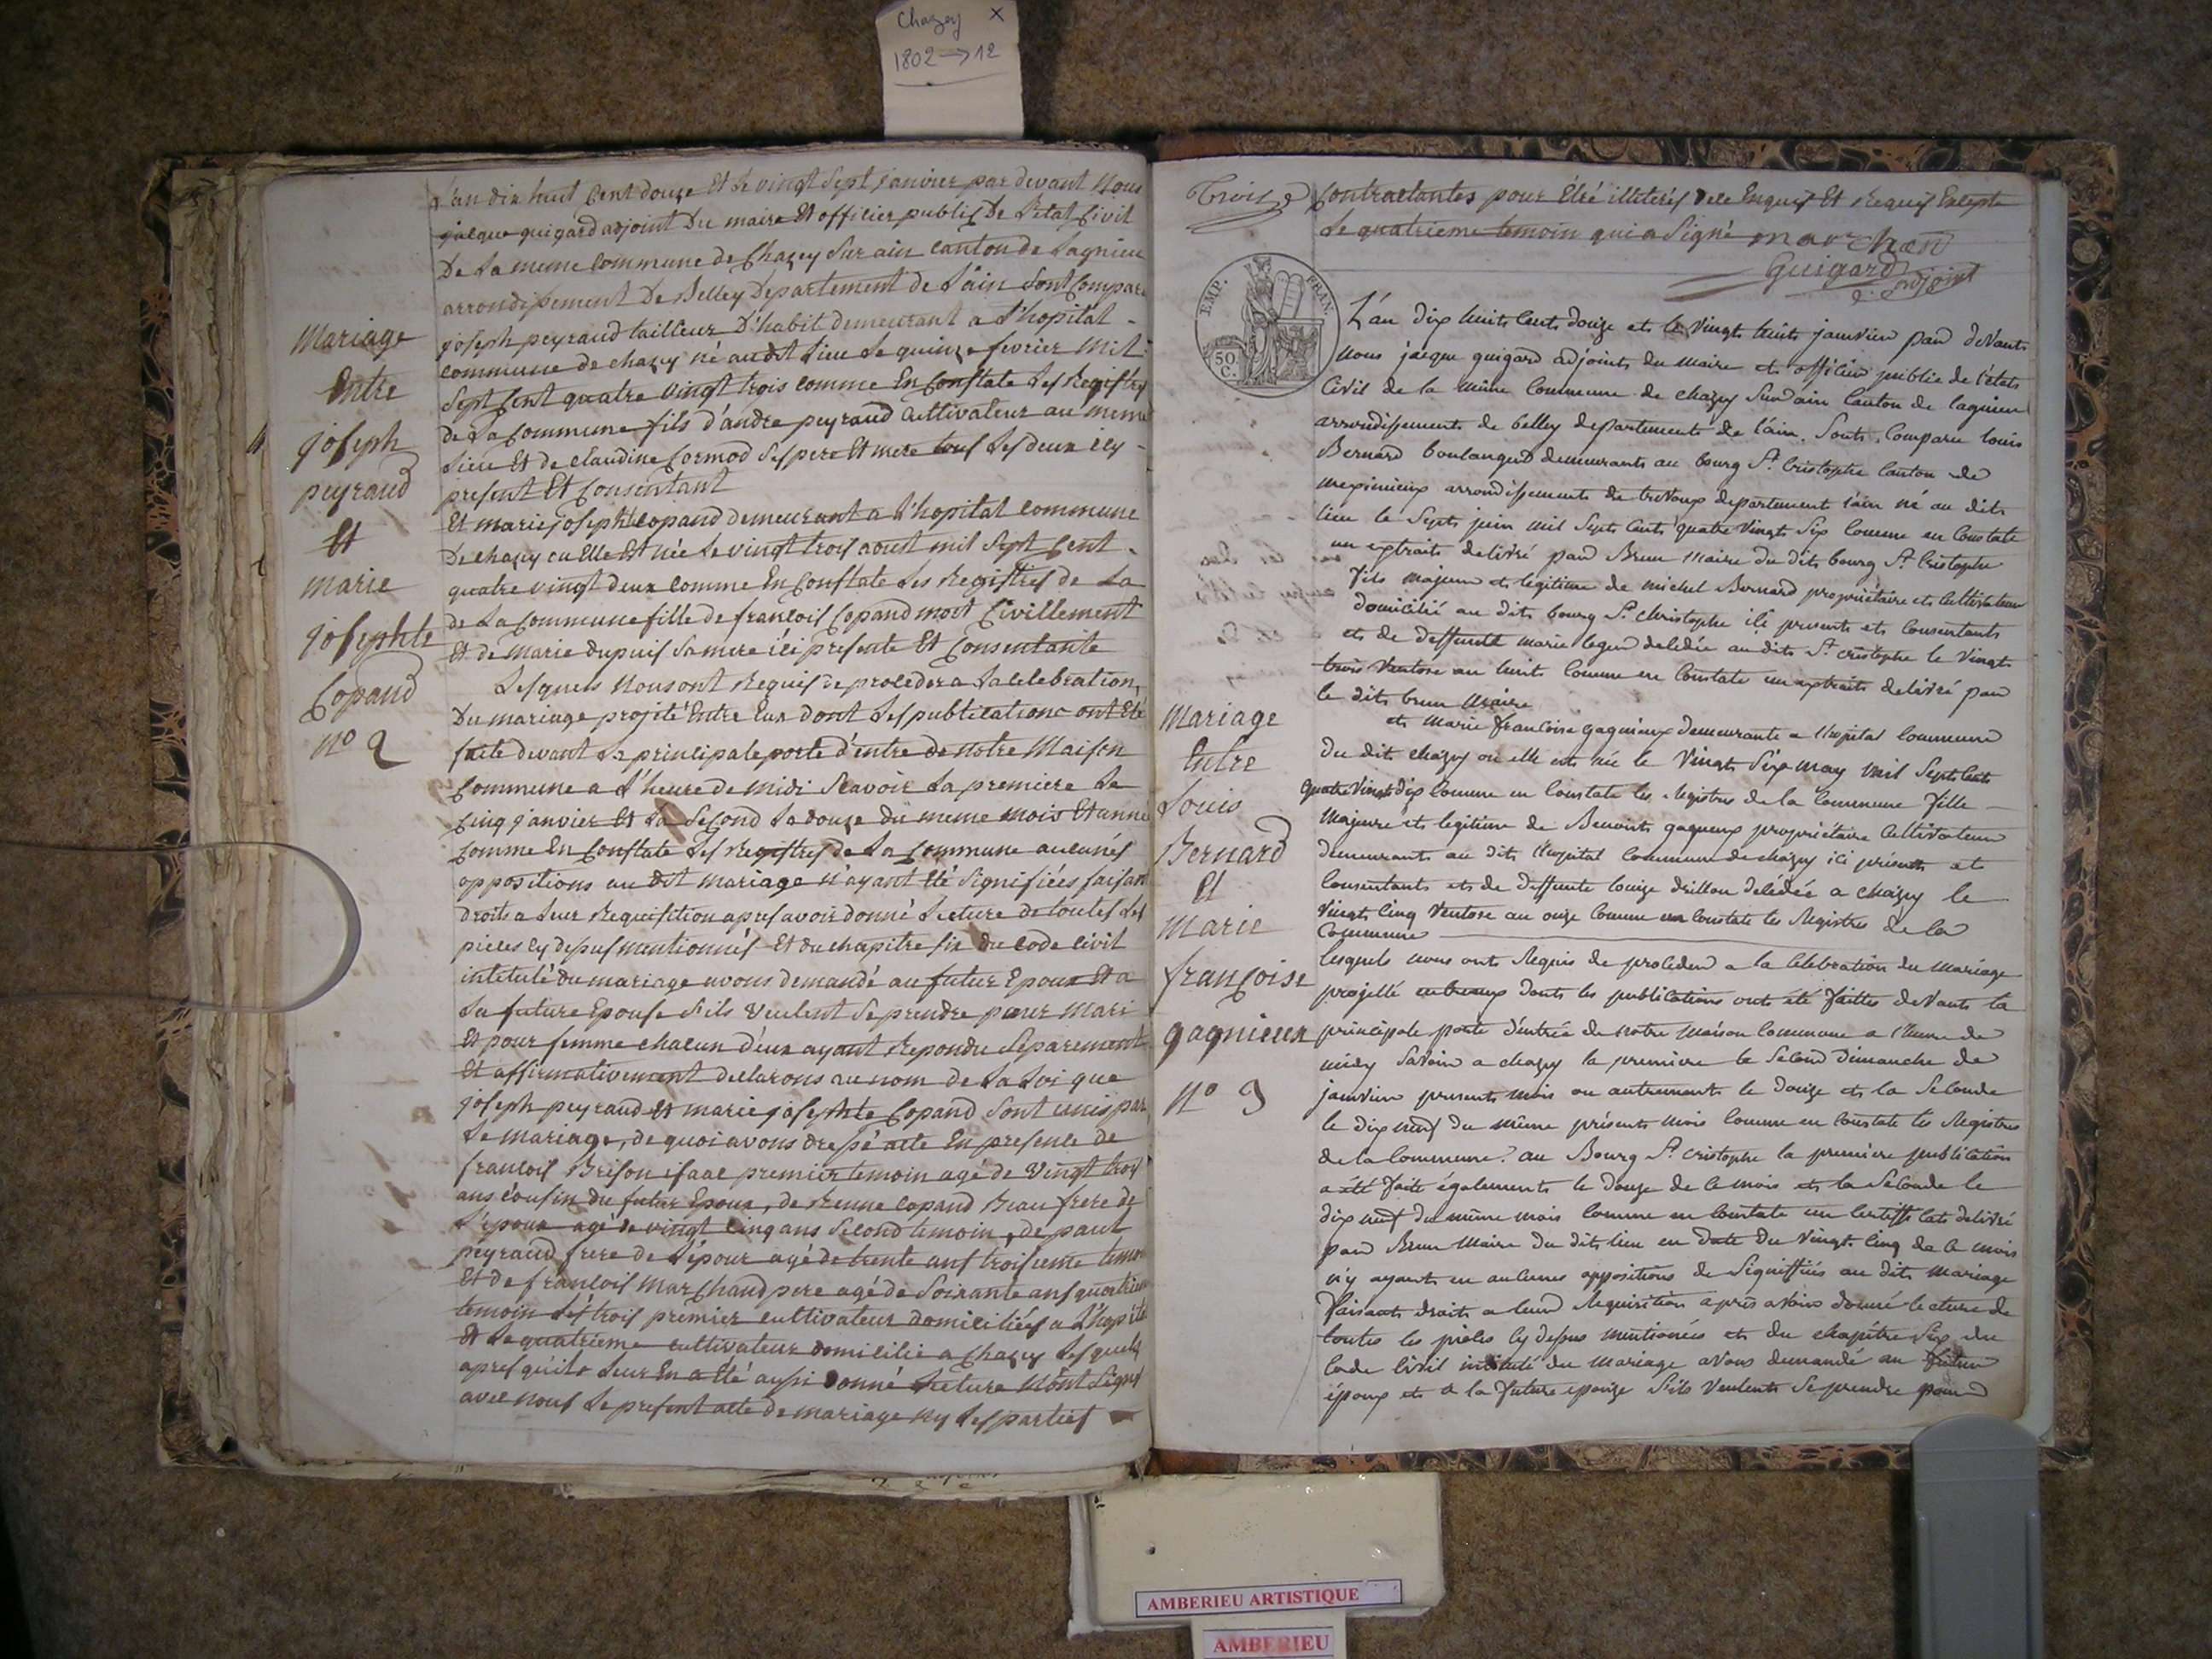 Chazey X
1802 → 12
L'an dix huit Cent douze Et le vingt Sept janvier par devant Nous
jacque guigard adjoint Du maire Et officier public De l'etat Civil
De La meme Commune de Chazey Sur ain Canton de Lagnieu
arrondissement De Belley Departement de L'ain Sont Compare
joseph peyraud tailleur D'habit demeurant a L'hopital -
commune de chazey né au dit Lieu Le quinze fevrier Mil
Sept Cent quatre vingt trois comme En Constate Les Registres
de La Commune fils d'andre peyraud Cultivateur au meme
Lieu Et de Claudine Cormod Ses pere Et mere tous Les deux icy -
present Et Consentant
Et marie josephte Copand demeurant a L'hopital commune
De chazey ou Elle Et née Le vingt trois aoust mil Sept Cent -
quatre vingt deux comme En Constate Les Registres de La
de La Commune fille de francois Copand mort Civillement
Et de Marie dupuis Sa mere ici presente Et Consentante
Lesquels Nous ont Requis de proceder a La Celebration
Du mariage projeté Entre Eux dont Les publications ont Eté
faite devant La principale porte d'entre de notre Maison
Commune a L'heure de Midi Scavoir La premiere Le
Cinq janvier Et La Second La douze du meme mois Et anné
Comme En Constate Les Registres de La Commune aucunes
oppositions au dit mariage N'ayant Eté Signifiées faisant
droits a Leur Requisition apres avoir donné Lecture de toutes Les
pieces cy dessus mentionnés Et du chapitre six du Code Civil
intitulé du mariage avons demandé au futur Epoux Et a
La future Epouse S'ils veulent Se prendre pour Mari
Et pour femme chacun d'eux ayant Repondu Separement
Et affirmativement declarons au nom de La Loi que
joseph peyraud et marie josephte Copand Sont unis par
Le Mariage, de quoi avons dressé acte En presence de
francois Brison isaac premier temoin agé de vingt trois
ans cousin du futur Epoux, de Copand Beau frere de
L'epoux agé de vingt Cinq ans Second temoin, de paul
peyraud frere de L'epoux agé de trente ans troisieme temoin
Et de francois Marchand pere agé de Soixante ans quatrieme
temoin Les trois premier cultivateur domiciliés a L'hopital
Et Le quatrieme cultivateur domicilié a Chazey Lesquels
apres qu'il Leur En a Eté aussi donné Lecture N'ont Signé
avec nous Le present acte de mariage Ny Les parties
Mariage
Entre
joseph
peyraud
Et
marie
josephte
Copand
N° 2
Trois
Contractantes pour Etré illiterés de ce Enquis Et Requis Excepte
Le quatrieme temoin qui a Signé marchan
Guigard
adjoint
EMP. FRAN.
50 C.
L'an dix huits Cents douze et le Vingts huits janvier pard deVants
Nous jacque guigard adjoints du maire et officier public de l'états
Civil de la même Commune de chazey Surd'ain Canton de lagnieu
arrondissements de belley departements de l'ain. Sonts Comparu louis
Bernard boulanger demeurants au bourg St. Cristophe Canton de
mexpimieux arrondissements de treVoux departement l'ain né au dits
lieu le Septs juin mil Septs Cents quatre Vingts Six Comme en Constate
un extraits delivré pard Brun maire du dits bourg St. Cristophe
fils majeur et legitime de michel Bernard proprietaire et Cultivateur
domicilié au dits bourg St. Christophe içi presents ets Consentants
ets de deffunte marie leger dèlédée au dits St. cristophe le Vingts
trois Ventose an huits Comme en Constate un extraits delivré pard
le dits brun Maire
ets marie francoise gagnieux demeurante a l'hopital Commune
du dit chazey ou elle ets née le Vingts Six may mil Septs Cents
quatre Vingts dix Comme en Constate les Registres de la Commune fille
Majeure ets legitime de Benoits gagneux propriétaire Cultivateur
demeurants au dits l'hopital Commune de chazey içi présents et
Consentants ets de Deffunte louize drillon delédée a chazey le
Vingts Cinq Ventose an onze Comme en Constate les Registres de la
Commune
lesquels nous onts Requis de proceder a la Célébration du Mariage
projetté entreux donts les publications onts été faittes deVants la
principale porte d'entrée de notre Maison Commune a l'heure de
midy Savoir a chazey la premiere le Second Dimanche de
janvier presents mois ou autrements le douze ets la Seconde
le dix neuf du même présents mois Comme en Constate les Registres
de la Commune. au Bourg St. Cristophe la première publication
a été faite égalements le douze de Ce mois ets la Séconde le
dix neuf du même mois Comme en Constate un Certifficats delivré
pard Brun Maire du dits lieu en date du Vingts Cinq de Ce mois
n'y ayants eu aucunes oppositions de Signiffiés au dits Mariage
faisants droits a leurd Requisition après aVoir donné lecture de
toutes les pièces Cy dessus mentionées ets du chapitre Six du
Code Civil intitulé du Mariage aVons demandé au futur
époux ets a la future epouze S'ils Veulents Se prendre pourd
Mariage
Entre
Louis
Bernard
Et
Marie
françoise
gagnieux
N° 3
AMBERIEU ARTISTIQUE
AMBERIEU